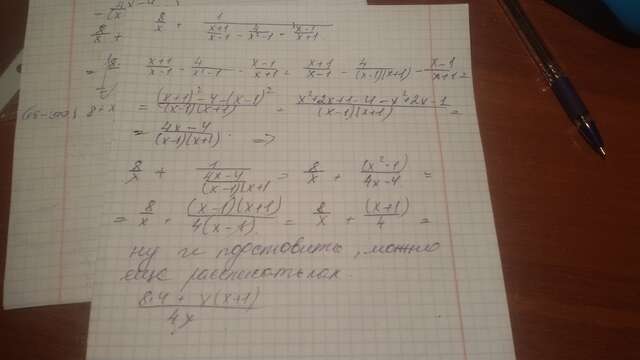 8/x + 1/((x+1)/(x-1) - 4/(x²-1) - (x-1)/(x+1))
(x+1)/(x-1) - 4/(x²-1) - (x-1)/(x+1) = (x+1)/(x-1) - 4/((x-1)(x+1)) - (x-1)/(x+1) =
= ((x+1)²-4-(x-1)²)/((x-1)(x+1)) = (x²+2x+1-4-x²+2x-1)/((x-1)(x+1)) =
= (4x-4)/((x-1)(x+1)) =>
8/x + 1/((4x-4)/((x-1)(x+1) = 8/x + (x²-1)/(4x-4) =
= 8/x + ((x-1)(x+1))/(4(x-1) = 8/x + (x+1)/4 =
ну и подставить, можно
еще расписать как
(8·4 + x(x+1))/(4x)